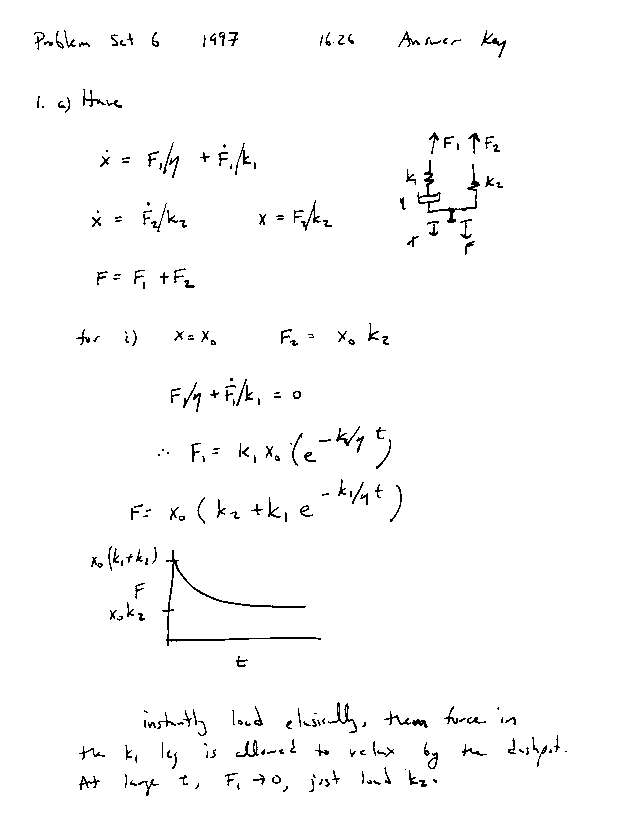 Problem Set 6 1997 16.26 Answer Key
1. a) Have
ẋ = F₁/η + Ḟ₁/k₁
F₁ F₂
k₁ k₂
η
x F
ẋ = Ḟ₂/k₂ x = F₂/k₂
F = F₁ + F₂
for i) x = x₀ F₂ = x₀ k₂
F₁/η + Ḟ₁/k₁ = 0
∴ F₁ = k₁ x₀ (e^{-k₁/η t})
F = x₀ ( k₂ + k₁ e^{-k₁/η t} )
x₀(k₁+k₂)
F
x₀k₂
t
instantly load elasically, then force in
the k₁ leg is allowed to relax by the dashpot.
At large t, F₁ → 0, just load k₂.